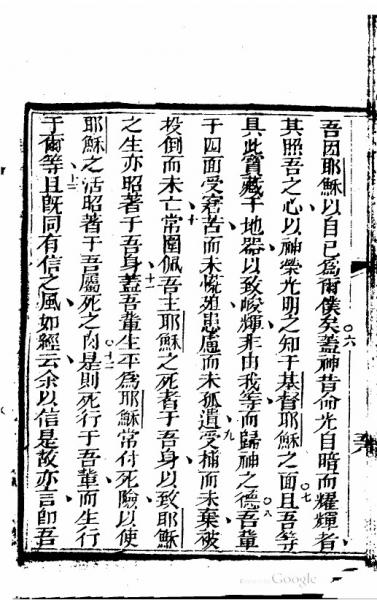 吾因耶穌以自已為爾僕矣蓋神昔命光自暗而耀輝者
其照吾之心以神榮光明之知于基督耶穌之面且吾等
具此寶藏于地器以致峻輝非由我等而歸神之德吾輩
于四面受窘苦而未慌殖患慮而未孤遺受捕而未棄被
投倒而未亡常圍佩吾主耶穌之死者于吾身以致耶穌
之生亦昭著于吾身蓋吾輩生平為耶穌常付死險以使
耶穌之活昭著于吾屬死之肉是則死行于吾輩而生行
于爾等且既同有信之風如經云余以信是故亦言即吾
六
七
八
九
十
十一
十二
十三
Google